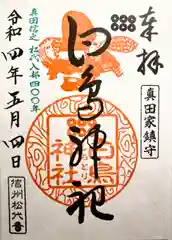 奉拝
真田家鎮守
白鳥神社
白鳥神社
真田信之 松代入部四〇〇年
令和四年五月四日
信州松代